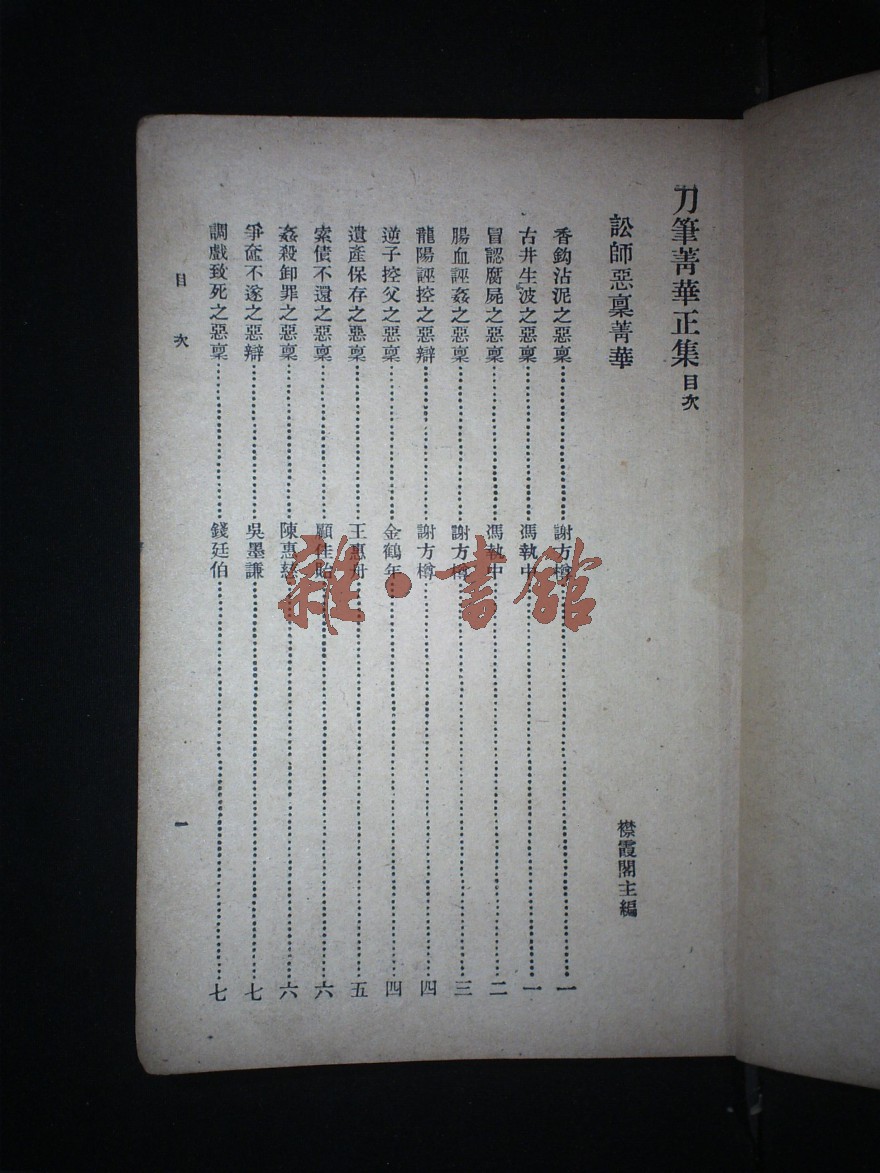 刀筆菁華正集 目次
訟師惡稟菁華
襟霞閣主編
香鈎沾泥之惡稟 謝方樽 一
古井生波之惡稟 馮執中 一
冒認腐屍之惡稟 馮執中 二
腸血誣姦之惡稟 謝方樽 三
龍陽誣控之惡辯 謝方樽 四
逆子控父之惡稟 金鶴年 四
遺產保存之惡稟 王惠舟 五
索債不還之惡稟 顧佳貽 六
姦殺卸罪之惡稟 陳惠慈 六
爭奩不遂之惡辯 吳墨謙 七
調戲致死之惡稟 錢廷伯 七
目次
一
雜·書館